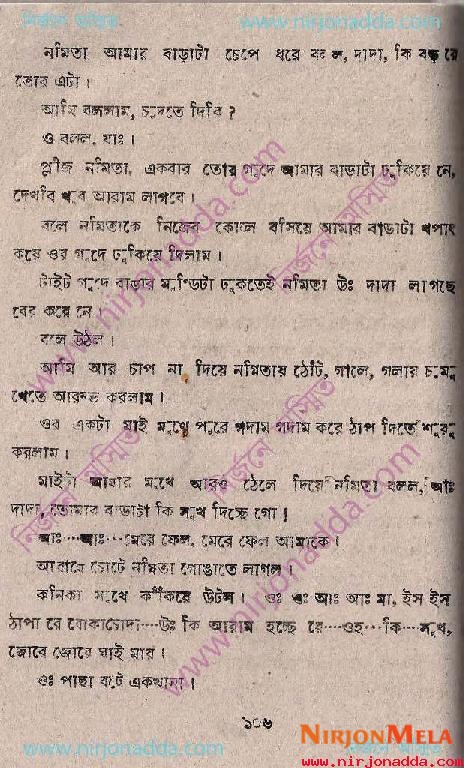 www.nirjonadda.com
নমিতা আমার বাড়াটা চেপে ধরে বলল, দাদা, কি বড় রে
তোর এটা।
আমি বললাম, চুদতে দিবি?
ও বলল, যাঃ।
প্লীজ নমিতা, একবার তোর গুদে আমার বাড়াটা ঢুকিয়ে নে,
দেখবি খুব আরাম লাগবে।
বলে নমিতাকে নিজের কোলে বসিয়ে আমার বাড়াটা খপাৎ
করে ওর গুদে ঢুকিয়ে দিলাম।
টাইট গুদে বাড়ার মুণ্ডিটা ঢুকতেই নমিতা উঃ দাদা লাগছে
বের করে নে।
বলে উঠল।
আমি আর চাপ না দিয়ে নমিতায় ঠোঁট, গালে, গলায় চুমু
খেতে আরম্ভ করলাম।
ওর একটা মাই মুখে পুরে গদাম গদাম করে ঠাপ দিতে শুরু
করলাম।
মাইটা আমার মুখে আরও ঠেলে দিয়ে নমিতা বলল, আঃ
দাদা, তোমার বাড়াটা কি সুখ দিচ্ছে গো!
আঃ···আঃ···মেরে ফেল, মেরে ফেল আমাকে।
আরামে চোটে নমিতা গোঙাতে লাগল।
কনিকা সুখে কঁকিয়ে উঠল। ওঃ ওঃ আঃ আঃ মা, ইস ইস
ঠাপা রে বোকাচোদা···উঃ কি আরাম হচ্ছে রে···ওহ···কি···সুখ,
জোরে জোরে মাই মার।
ওঃ পাছা বটে একখানা।
১০৬
NIRJONMELA
www.nirjonadda.com
www.nirjonadda.com
নির্জনে অস্মিত
www.nirjonadda.com